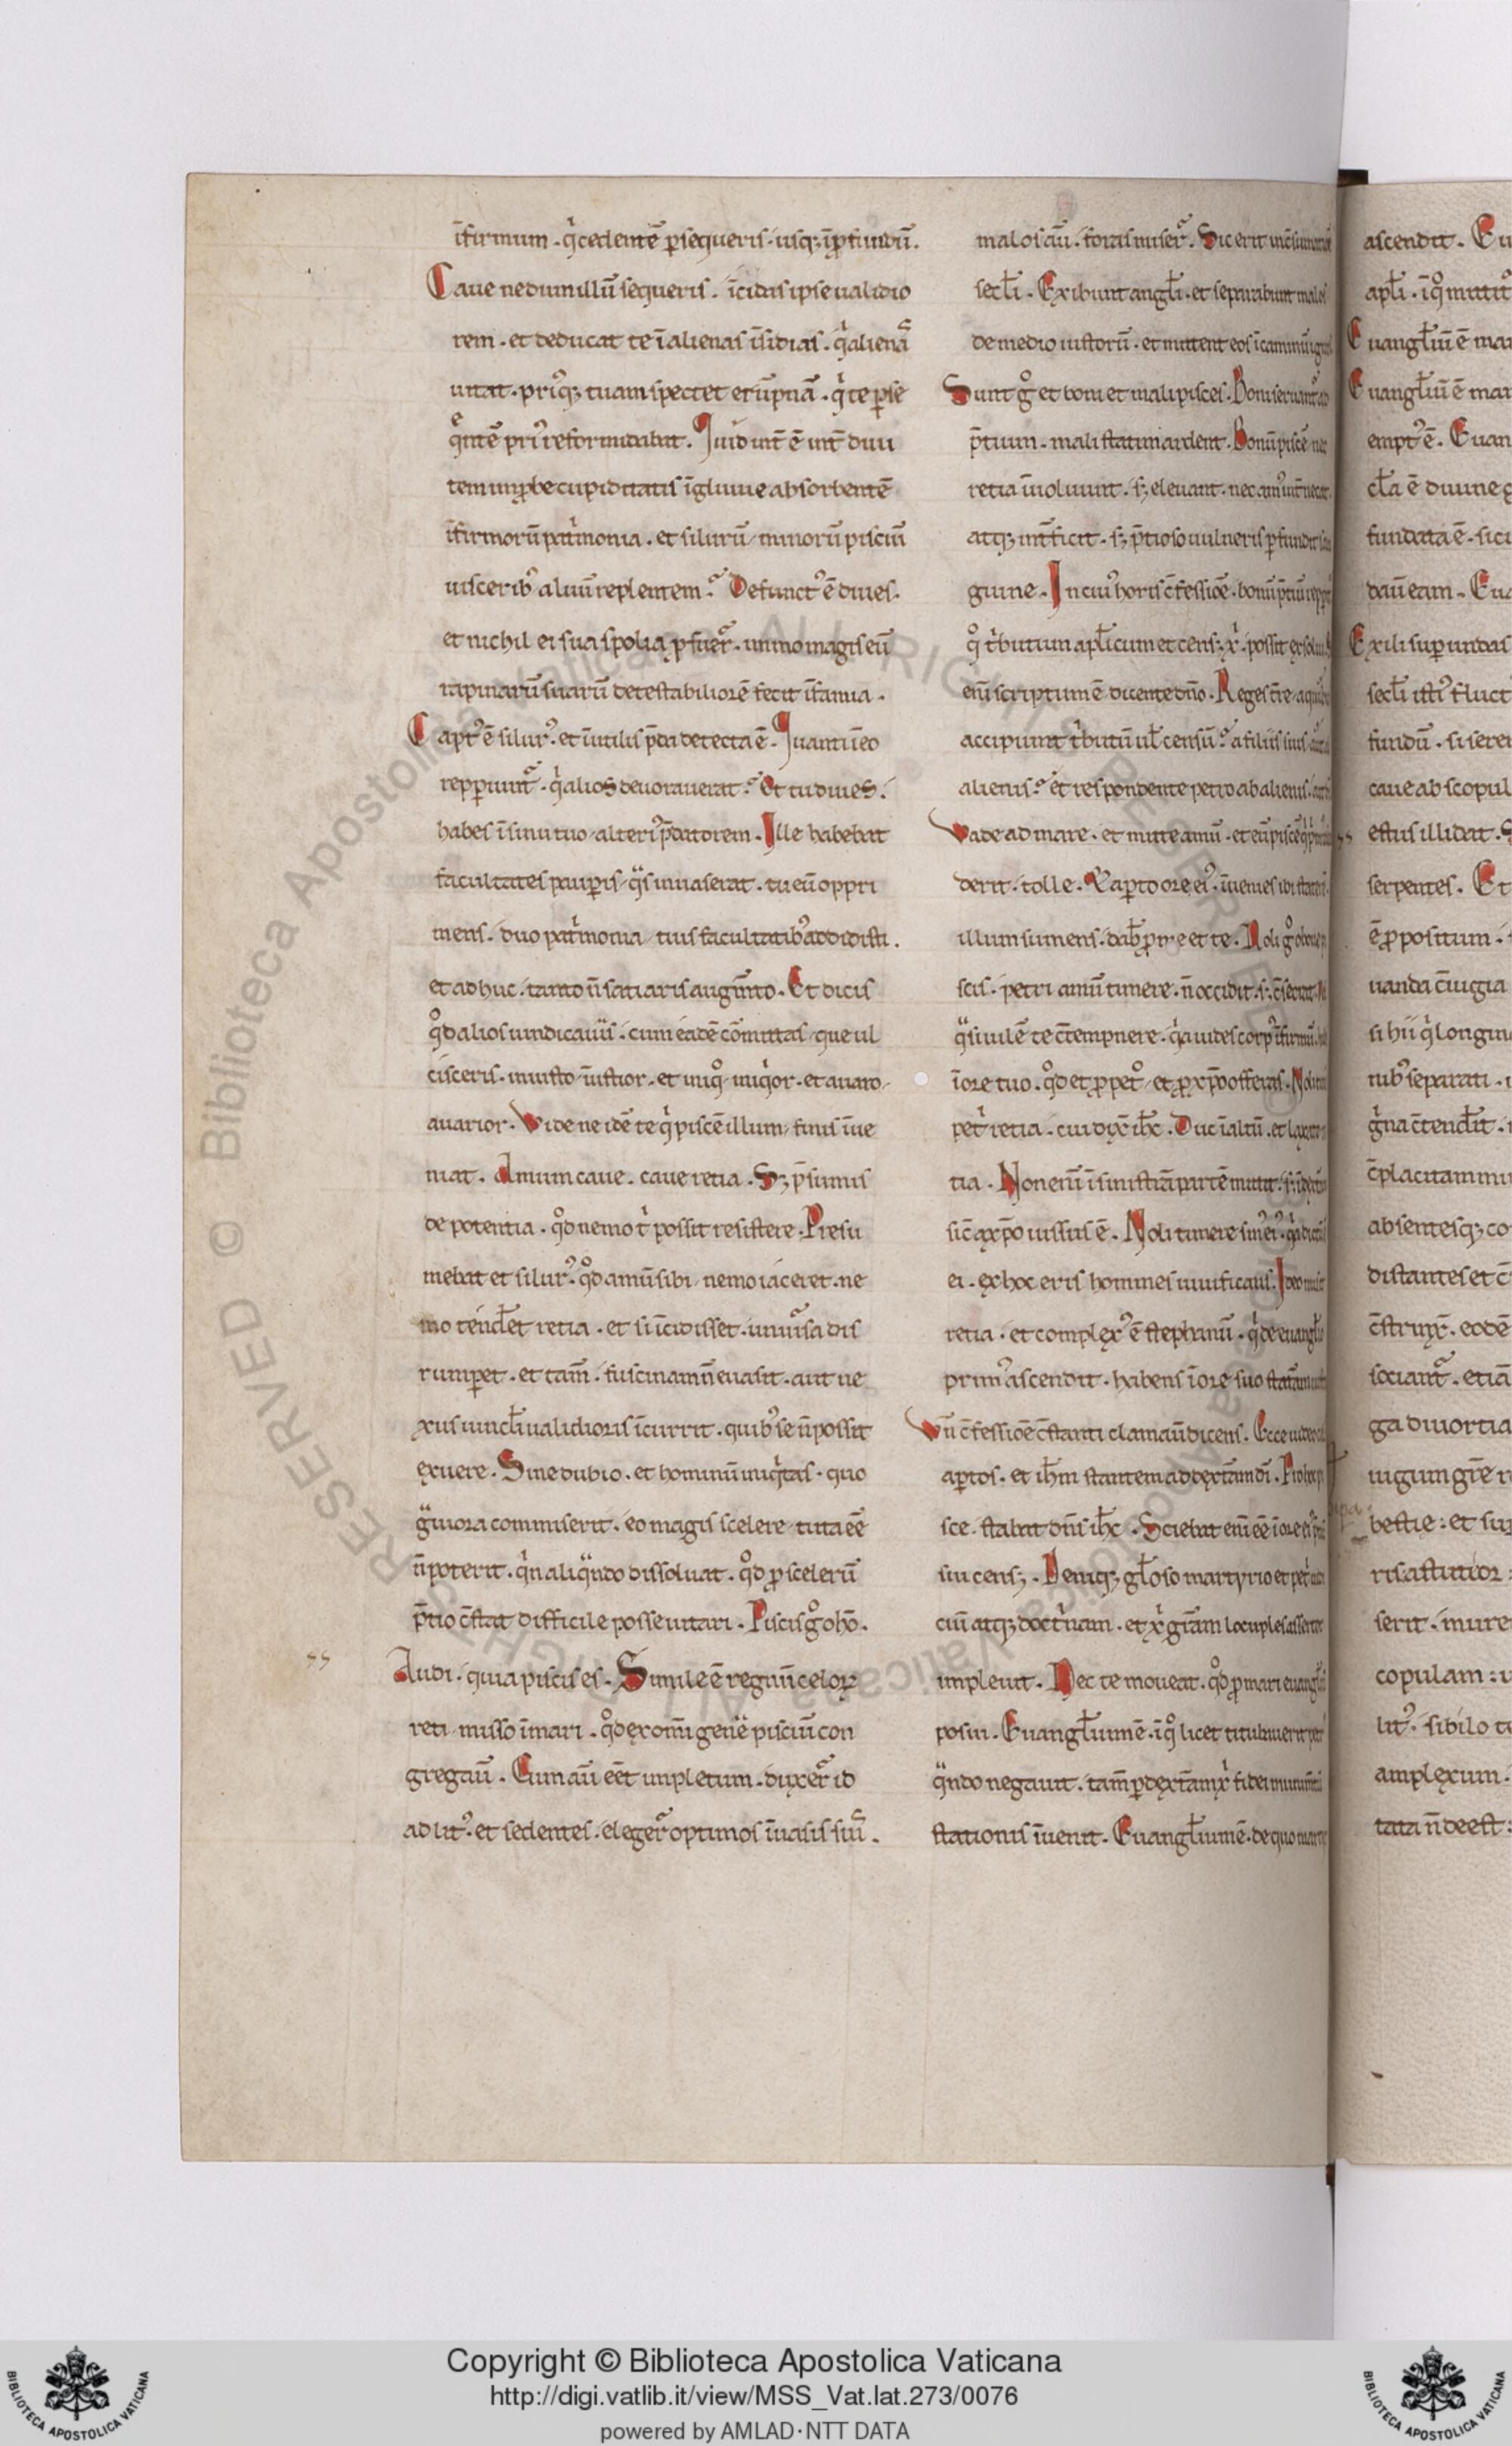 īfirmum . q̇cedentē ꝑsequeris . usq; īꝓfundū .
Caue ne dum illū sequeris . īcidas ipse ualidio
rem . et deducat te ī alienas īsidias . q̇ alienā
uitat . priꝰq; tuam spectet erūpnā . q̇ te ꝑse
q̄ntē priꝰ reformidabat . Quid int̄ ē int̄ diui
tem inꝓbe cupiditatis īgluuie absorbentē
īfirmorū pat̍monia . et silurū minorū pisciū
uisceribꝰ aluū replentem . Defunctꝰ ē diues .
et nichil ei sua spolia ꝓfuer̄ . immo magis eū
rapinarū suarū detestabiliorē fecit īfamia .
Captꝰ ē silurꝰ . et īutilis p̄da detecta ē . Quanti ī eo
repꝑiunt̄ . q̇ alios deuorauerat . Et tu diues .
habes ī sinu tuo alteriꝰ p̄datorem . Ille habebat
facultates pauꝑis q̄s inuaserat . tu eū oppri
mens . duo pat̍monia tuis facultatibꝰ addidisti .
et adhuc . tanto n̄ satiaris augm̄to . Et dicis
qd̊ alios uindicauīs . cum eadē cōmittas que ul
cisceris . iniusto īiustior . et iniq̊ iniq̍or . et auaro
auarior . Vide ne idē te q̍ piscē illum finis īue
niat . Amum caue . caue retia . S; p̄sumis
de potentia . qd̊ nemo t̍ possit resistere . Presu
mebat et silurꝰ . qd̊ amū sibi nemo iaceret . ne
mo tend̄et retia . et si īcidisset . uniūsa dis
rumꝑet . et tam̄ . fuscinam n̄ euasit . aut ne
xus uincl̄i ualidioris īcurrit . quibꝰ se n̄ possit
exuere . Sine dubio . et hominū iniq̍tas . quo
g̈uiora commiserit . eo magis scelere tuta eē
n̄ poterit . q̍n aliq̈ndo dissoluat . qd̊ ꝓ scelerū
p̄tio c̄stat difficile posse uitari . Piscis g̊ ohō .
Audi . quia piscis es . Simile ē regnū celoꝝ
reti misso ī mari . qd̊ ex om̄i genē pisciū con
gregaū . Cum aū eēt impletum . duxer̄ id
ad litꝰ . et sedentes . eleger̄ optimos ī uasis suī .
malos aū . foras miser̄ . Sic erit
secl̄i . Exibunt angl̄i . et separabunt malos
de medio iustorū . et mittent eos ī caminū
Sunt g̊ et boni et mali pisces . Boni
p̄tium . mali statim ardent . Bonū piscē nec
retia īuoluunt . s; eleuant . nec
atq; int̄ficit . s; p̄tioso uulneris ꝑfundit
guine . In cuiꝰ horis c̄fessiōe . bonū p̄tiū
q̊ t̍butum apl̄icum et cens; x̍ . possit
enī scriptum ē dicente dn̄o . Reges t̄re
accipiunt t̍butū uł censū . a filiis suis
alienis . et respondente petro ab alienis .
Vade ad mare . et mitte amū . et eū piscē
derit . tolle . Et aꝑto ore eiꝰ . īuenies ibi
illum sumens . dab̄ ꝓ me et te . Noli g̊
scis . petri amū timere . n̄ occidit . s; c̄secrat
q̈si uilē te c̄tempnere . q̍a uides corpꝰ īfirmū .
ī ore tuo . qd̊ et ꝓ pet̊ et ꝓ xp̄o offeras . Noli
pet̍ retia . cui dix̄ ih̄c . Duc ī altū . et
tia . Non enī ī sinist̄ā partē mittit .
sic̄ a xp̄o iussus ē . Noli timere sinꝰ eiꝰ .
ei . ex hoc eris homines uiuificans .
retia . et complexꝰ ē stephanū . q̍ de
primꝰ ascendit . habens ī ore suo
Vn̄ c̄fessiōe c̄stanti clamaū dicens . Ecce
aꝑtos . et ih̄m stantem ad dext̄am dī .
sce . stabat dn̄s ih̄c . Sciebat enī eē ī ore
siu cens; . Deniq; gl̄oso martyrio et
ciū atq; doct̍nam . et x̍ gr̄am
impleuit . Nec te moueat . qd̊ ꝓ mari
posui . Euangl̄ium ē . ī q̊ licet titubauerit
q̈ndo negauit . tam̄ ꝑ dext̄am x̍ fidei
stationis īuenit . Euangl̄ium ē . de quo
ascendit . Eu
apl̄i . ī q̊ mittit
Euangl̄iū ē mar
Euangl̄iū ē mar
emptꝰ ē . Euan
cl̄a ē diuine g
fundata ē . sici
daū eam . Eua
Exili suꝑ undas
secl̄i istiꝰ fluct
fundū . si seren
caue ab scopul
estus illidat . S
serpentes . Et
ē ꝓpositum .
uanda c̄iugia
si hii q̍ longin
nibꝰ separati .
g̍na c̄tend̄it .
c̄placitam mu
absentesq; co
distantes et c̄
c̄strinx̄ . eodē
sociant̄ . etiā
ga diuortia
iugum gr̄e
bestie : et sup
ris astutior :
serit . mure
copulam : u
litꝰ . sibilo
amplexum .
tata n̄ deest :
Copyright © Biblioteca Apostolica Vaticana
http://digi.vatlib.it/view/MSS_Vat.lat.273/0076
powered by AMLAD·NTT DATA
BIBLIOTECA APOSTOLICA VATICANA
BIBLIOTECA APOSTOLICA VATICANA